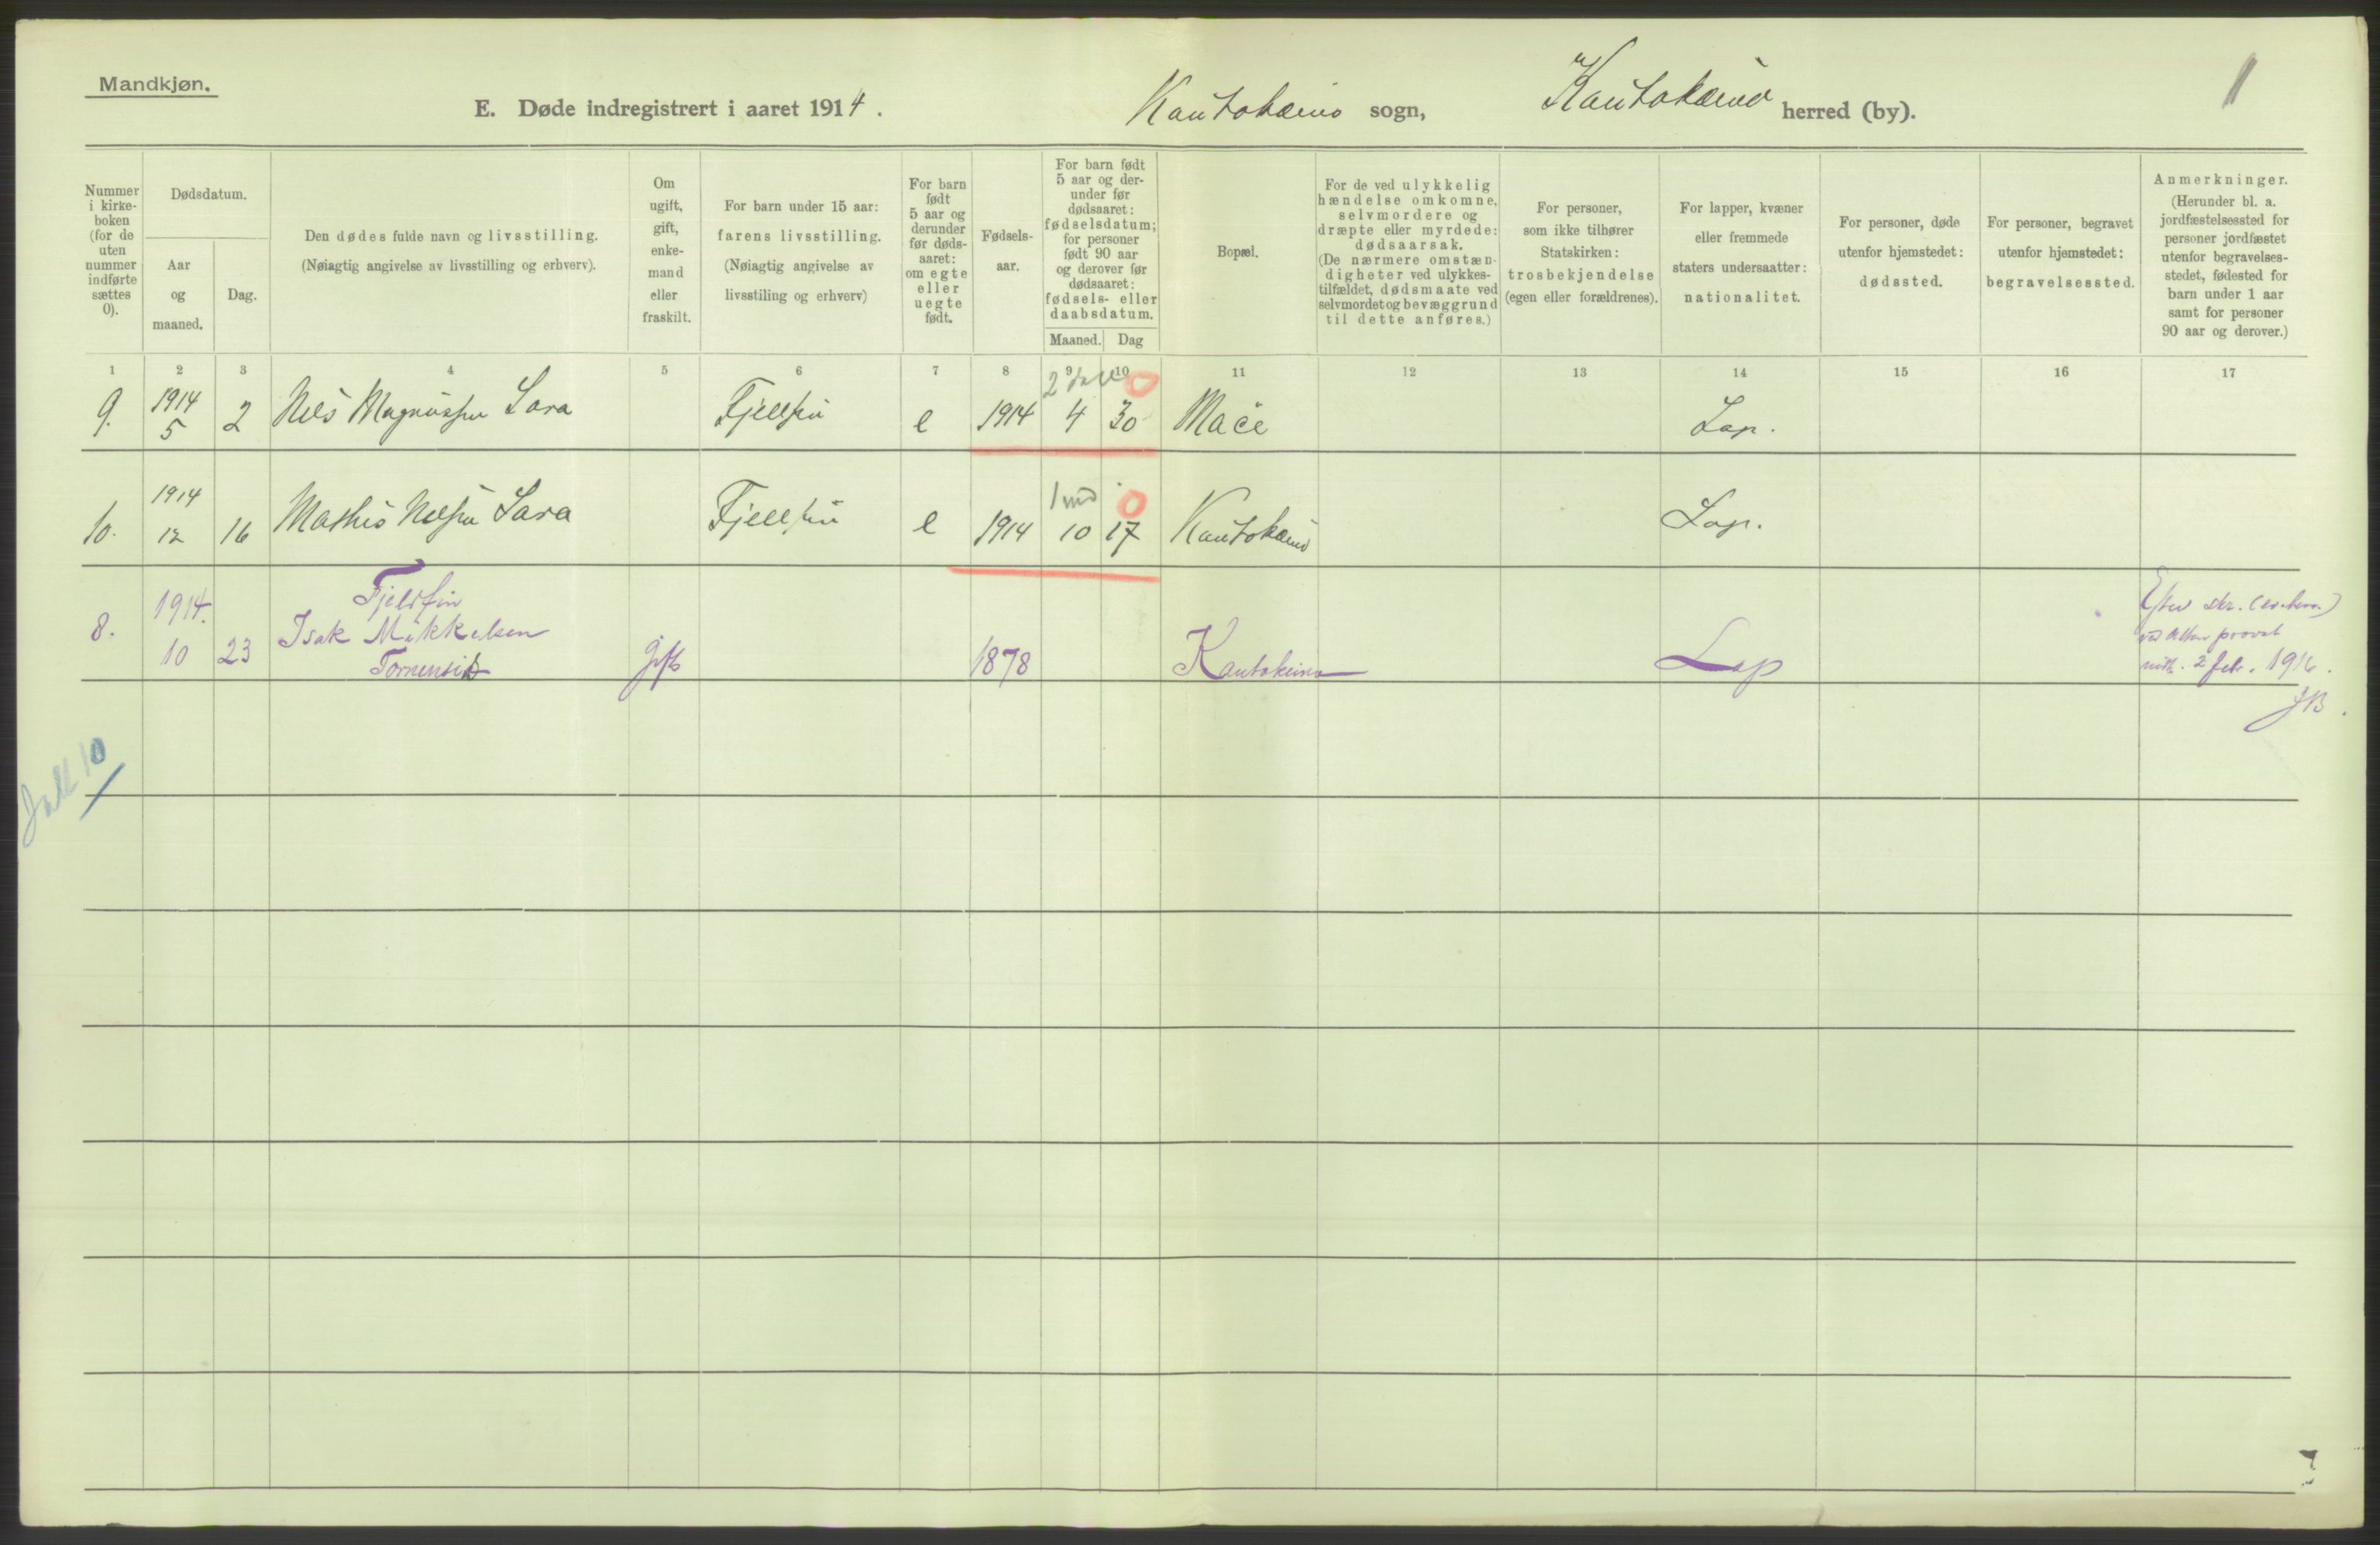 Mandkjøn.
E. Døde indregistrert i aaret 1914. Kautokeino sogn, Kautokeino herred (by).
Nummer i kirkeboken (for de uten nummer indførte sættes 0).
Dødsdatum.
Aar og maaned.
Dag.
Den dødes fulde navn og livsstilling.
(Nøiagtig angivelse av livsstilling og erhverv).
Om ugift, gift, enkemand eller fraskilt.
For barn under 15 aar: farens livsstilling.
(Nøiagtig angivelse av livsstiling og erhverv)
For barn født 5 aar og derunder før dødsaaret: om egte eller uegte født.
Fødselsaar.
For barn født 5 aar og derunder før dødsaaret: fødselsdatum; for personer født 90 aar og derover før dødsaaret: fødsels- eller daabsdatum.
Maaned. Dag
Bopæl.
For de ved ulykkelig hændelse omkomne, selvmordere og dræpte eller myrdede: dødsaarsak.
(De nærmere omstændigheter ved ulykkestilfældet, dødsmaate ved selvmordet og bevæggrund til dette anføres.)
For personer, som ikke tilhører Statskirken: trosbekjendelse (egen eller forældrenes).
For lapper, kvæner eller fremmede staters undersaatter: nationalitet.
For personer, døde utenfor hjemstedet: dødssted.
For personer, begravet utenfor hjemstedet: begravelsessted.
Anmerkninger.
(Herunder bl. a. jordfæstelsessted for personer jordfæstet utenfor begravelsesstedet, fødested for barn under 1 aar samt for personer 90 aar og derover.)
1 2 3 4 5 6 7 8 9 10 11 12 13 14 15 16 17
9. 1914 5 2 Nils Magnussen Sara Fjellfin e 1914 4 30 Mače Lap.
2 0
10. 1914 12 16 Mathis Nilsen Sara Fjellfin e 1914 10 17 Kautokeino Lap.
1 md 0
8. 1914. 10 23 Fjeldfin
Isak Mikkelsen
Tornensis gift 1878 Kautokeino Lap
Efter skr.
ved Alten provst
2 febr. 1916.
JB.
10